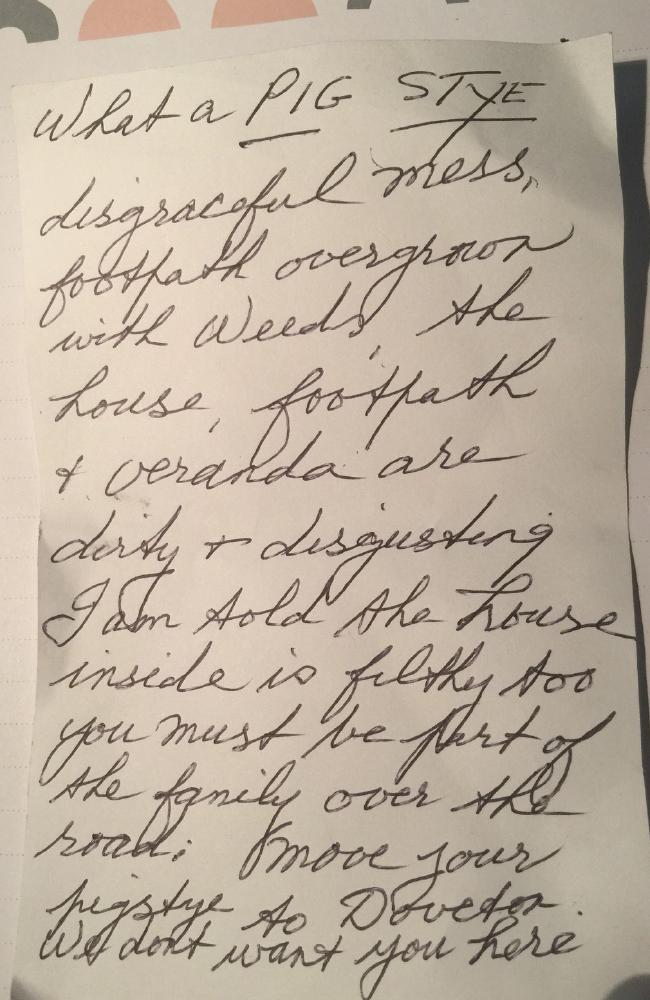 What a PIG STYE
disgraceful mess,
footpath overgrown
with weeds, the
house, footpath
& veranda are
dirty & disgusting
I am told the house
inside is filthy too
you must be part of
the fanily over the
road. Move your
pigstye to Doveton.
We dont want you here